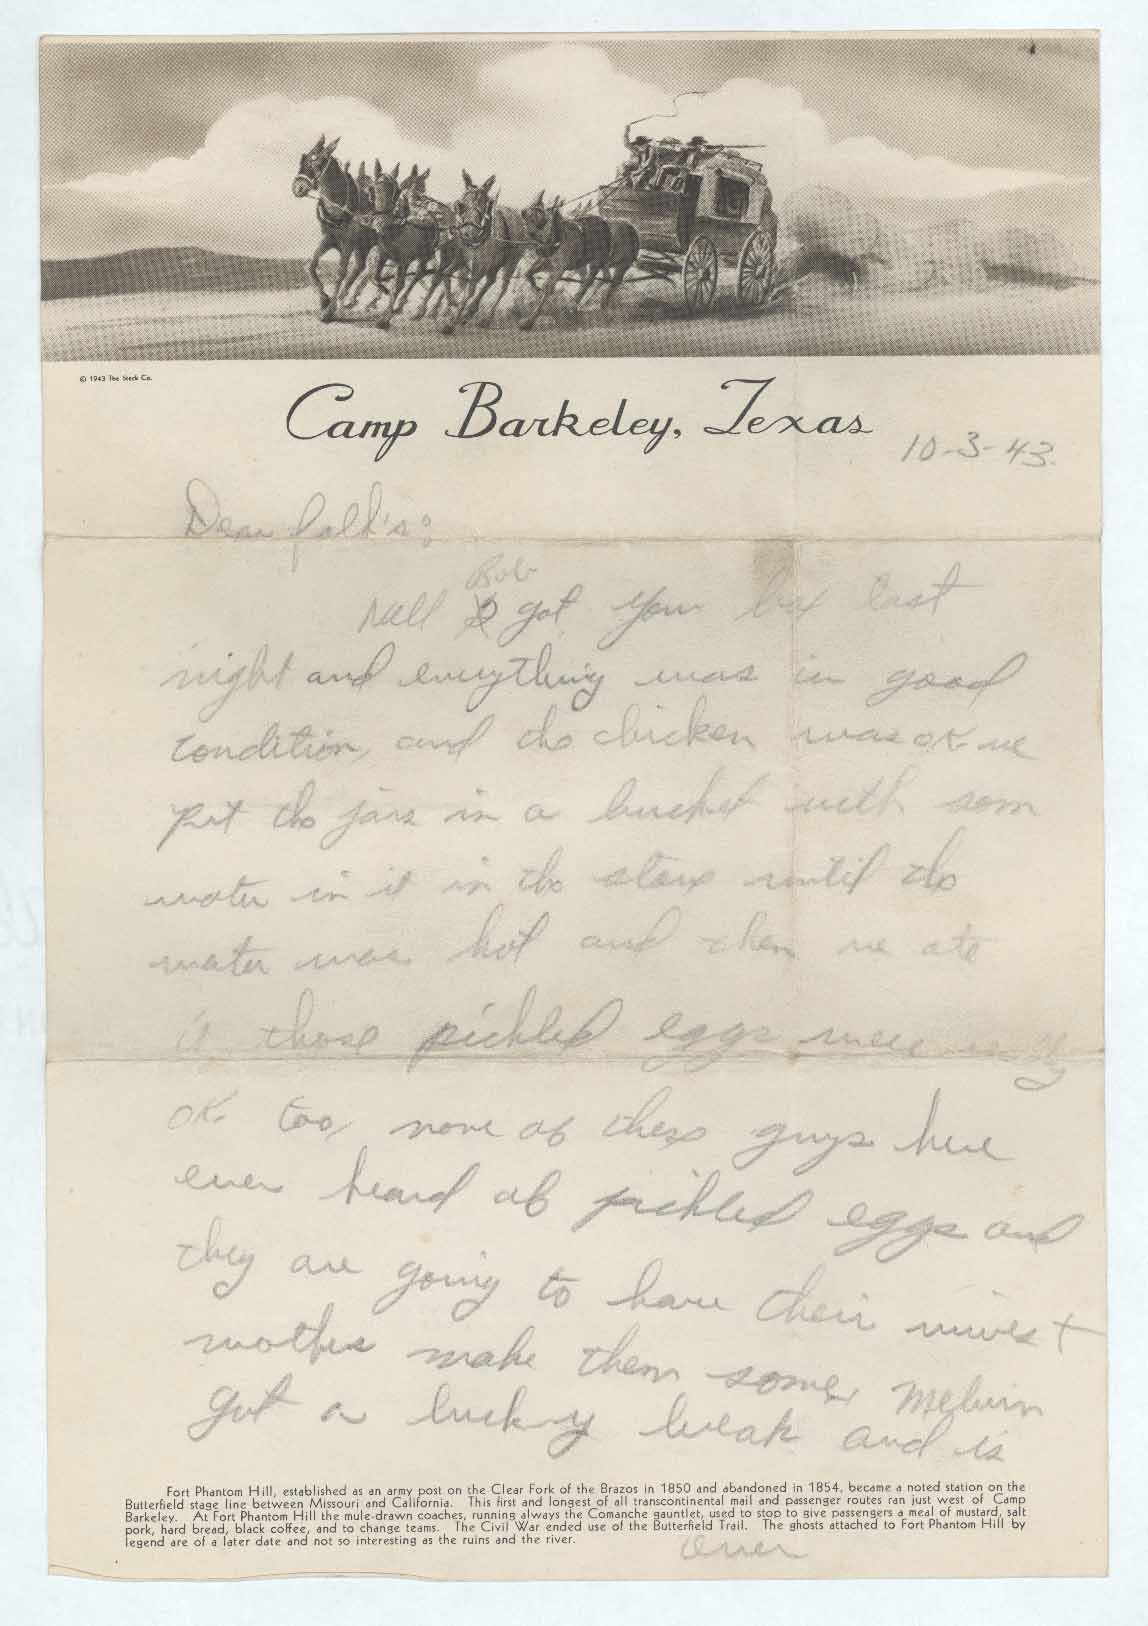 © 1943 The Steck Co.
Camp Barkeley, Texas
10-3-43.
Dear folk's:
Bob
Well got your box last
night and everything was in good
condition, and the chicken was OK we
put the jars in a bucket with som
water in it in the stove until the
water was hot and then we ate
it those pickled eggs were really
OK too, none of these guys here
ever heard of pickled eggs and
they are going to have their wives +
mothers make them some, Melvin
got a lucky break and is
Fort Phantom Hill, established as an army post on the Clear Fork of the Brazos in 1850 and abandoned in 1854, became a noted station on the
Butterfield stage line between Missouri and California. This first and longest of all transcontinental mail and passenger routes ran just west of Camp
Barkeley. At Fort Phantom Hill the mule-drawn coaches, running always the Comanche gauntlet, used to stop to give passengers a meal of mustard, salt
pork, hard bread, black coffee, and to change teams. The Civil War ended use of the Butterfield Trail. The ghosts attached to Fort Phantom Hill by
legend are of a later date and not so interesting as the ruins and the river.
over